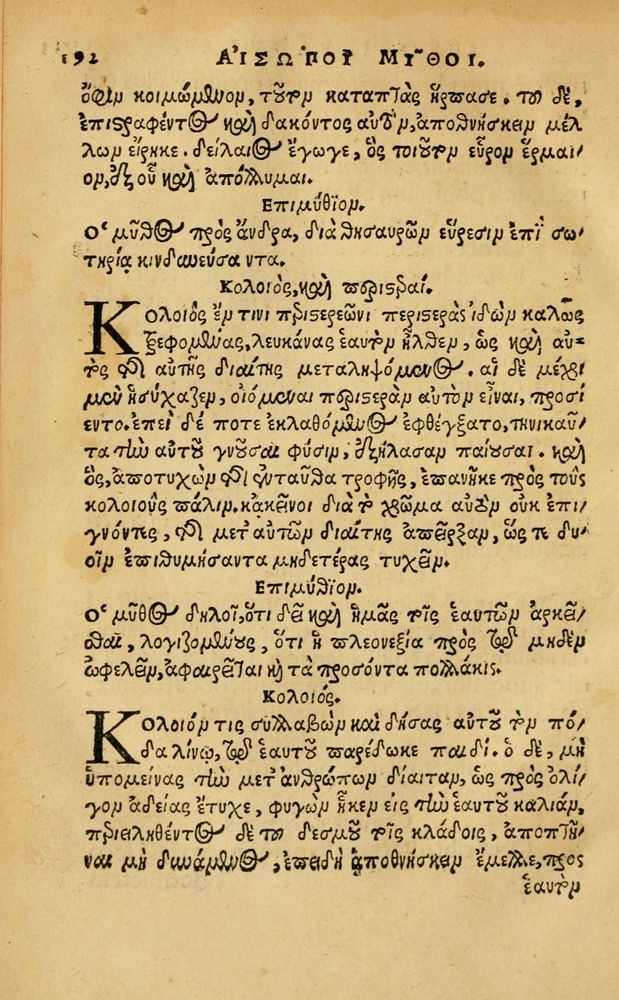 192 ΑἸΣΩ͂ΠΟΥ ΜΥ͂ΘΟΙ.
ὄφιν κοιμώμενον, τοῦτον καταπτὰς ἥρπασε. τοῦ δὲ,
ἐπιστραφέντος καὶ δακόντος αὐτὸν, ἀποθνήσκειν μέλ
λων εἴρηκε. δείλαιος ἔγωγε, ὃς τοιοῦτον εὗρον ἕρμαι-
ον, ἐξ οὗ καὶ ἀπόλλυμαι.
Ἐπιμύθϊον.
Ὁ μῦθος πρὸς ἄνδρα, διὰ θησαυρῶν εὕρεσιν ἐπὶ σω-
τηρία κινδυνεύσαντα.
Κολοιὸς, καὶ περιστεραί.
Κολοιὸς ἔν τινι περιστερεῶνι περιστερὰς ἰδὼν καλῶς
τρεφομένας, λευκάνας ἑαυτὸν ἦλθεν, ὡς καὶ αὐ-
τὸς τῆς αὐτῆς διαίτης μεταληψόμενος. αἱ δὲ μέχρι
μὲν ἡσύχαζεν, οἰόμεναι περιστερὰν αὐτὸν εἶναι, προσί
εντο. ἐπεὶ δέ ποτε ἐκλαθόμενος ἐφθέγξατο, τηνικαῦ-
τα τὴν αὐτοῦ γνοῦσαι φύσιν, ἐξήλασαν παίουσαι. καὶ
ὃς, ἀποτυχὼν τῆς ἐνταῦθα τροφῆς, ἐπανῆκε πρὸς τοὺς
κολοιοὺς πάλιν. κἀκεῖνοι διὰ τὸ χρῶμα αὐτὸν οὐκ ἐπι-
γνόντες, τῆς μετ' αὐτῶν διαίτης ἀπεῖρξαν, ὥς τε δυ-
οῖν ἐπιθυμήσαντα μηδετέρας τυχεῖν.
Ἐπιμύθϊον.
Ὁ μῦθος δηλοῖ, ὅτι δεῖ καὶ ἡμᾶς τοῖς ἑαυτῶν ἀρκεῖ-
σθαι, λογιζομένους, ὅτι ἡ πλεονεξία πρὸς τῷ μηδὲν
ὠφελεῖν, ἀφαιρεῖται κὴ τὰ προσόντα πολλάκις.
Κολοιός.
Κολοιόν τις συλλαβὼν καὶ δήσας αὐτοῦ τὸν πό-
δα λίνῳ, τῷ ἑαυτοῦ παρέδωκε παιδί. ὁ δὲ, μὴ
ὑπομείνας τὴν μετ' ἀνθρώπων δίαιταν, ὡς πρὸς ὀλί-
γον ἀδείας ἔτυχε, φυγὼν ἧκεν εἰς τὴν ἑαυτοῦ καλιάν,
περιειληθέντος δὲ τοῦ δεσμοῦ τοῖς κλάδοις, ἀποπτῆ-
ναι μὴ δυνάμενος, ἐπειδὴ ἀποθνήσκειν ἔμελλε, πρὸς
ἑαυτὸν